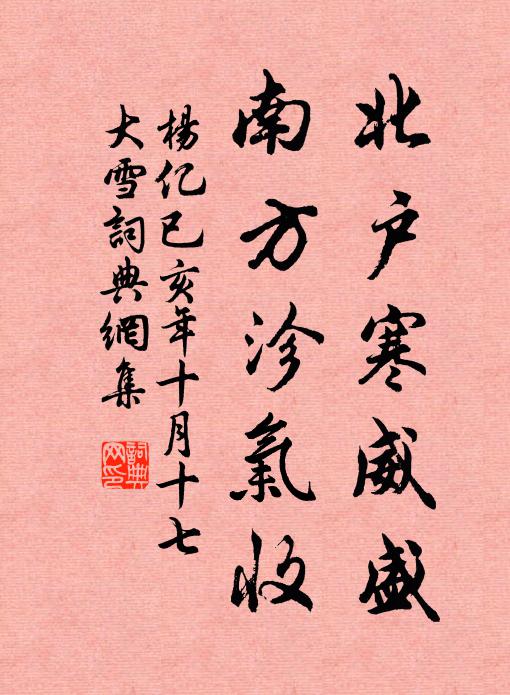 北户寒威盛
南方沴氣收
楊亿己亥年十月十七
大雪詞典網集
詞典
网印